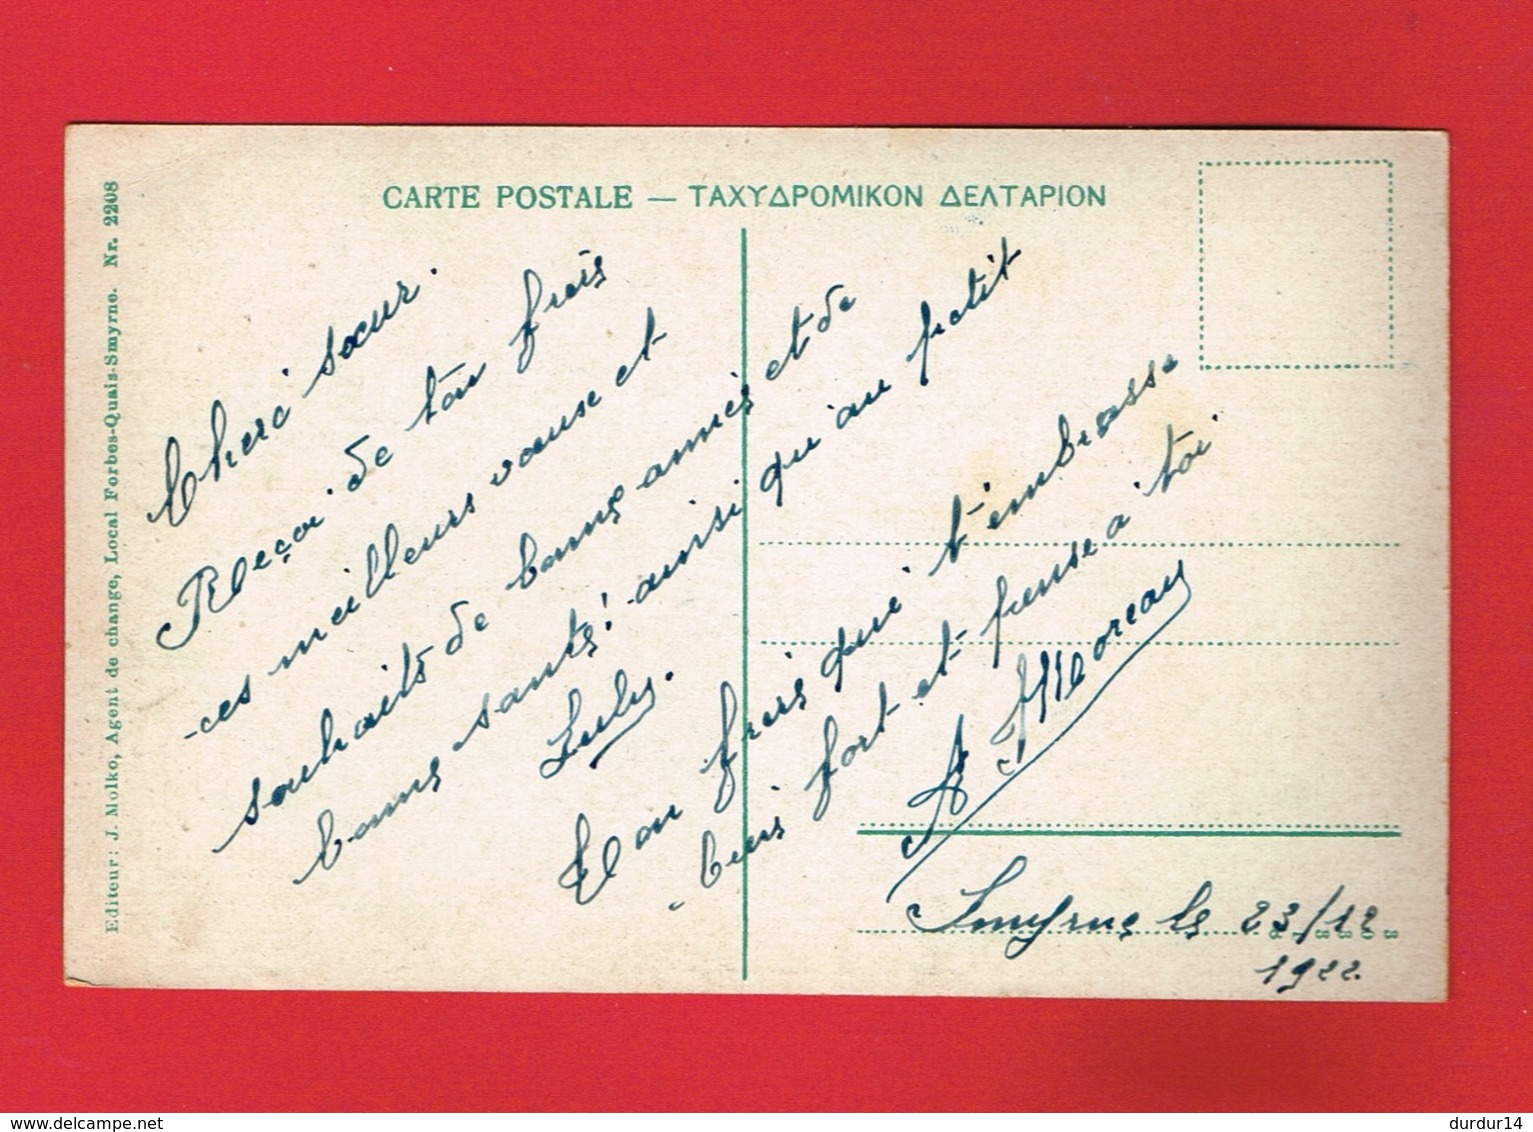 CARTE POSTALE — ΤΑΧΥΔΡΟΜΙΚΟΝ ΔΕΛΤΑΡΙΟΝ
Editeur: J. Molko, Agent de change, Local Forbes-Quais-Smyrne. Nr. 2208
Cheré sœur.
Reçoi de ton freis
ces meilleurs vause et
souhaits de bonne année et de
bonne santé! ainsi qu'au petit
Luly.
Ton freis qui t'embrasse
bien fort et pense a toi.
A Moreau
Smyrne le 23/12
1922
delcampe.net
durdur14